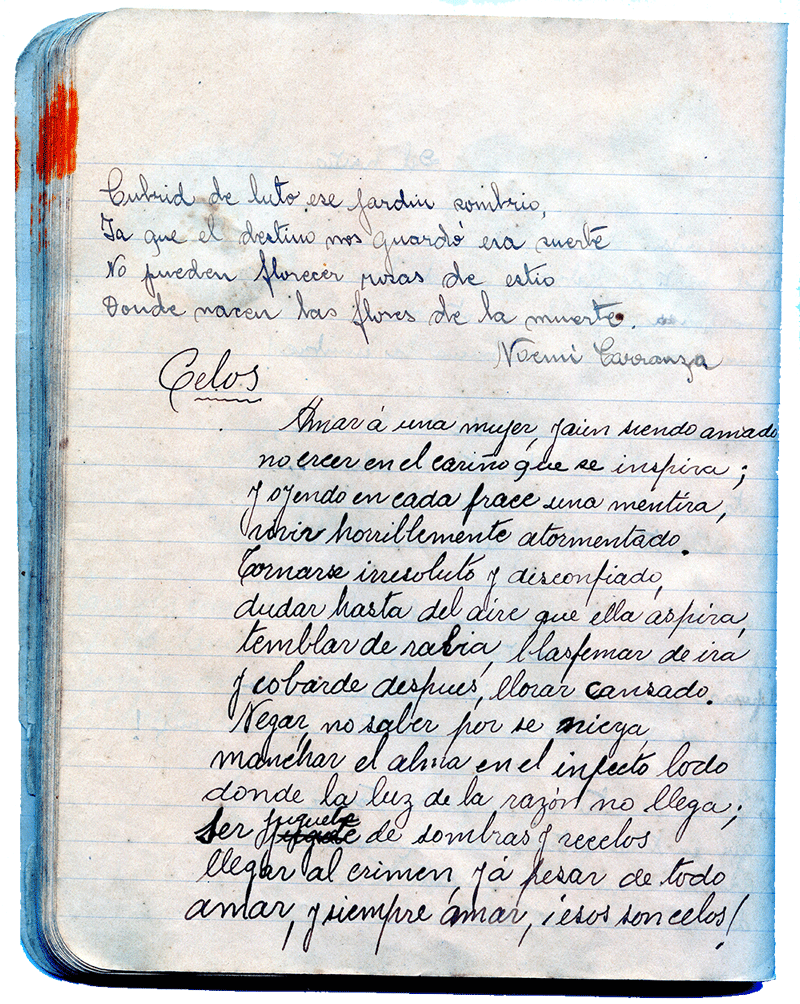 Cubrid de luto ese jardin sombrio,
Ya que el destino nos guardó esa suerte
No pueden florecer rosas de estio
Donde nacen las flores de la muerte.
Noemi Carranza
Celos
Amar á una mujer, y aún siendo amado
no creer en el cariño que se inspira;
y oyendo en cada frace una mentira,
vivir horriblemente atormentado.
Tornarse irresoluto y disconfiado,
dudar hasta del aire que ella áspira,
temblar de rabia, blasfemar de ira
y cobarde despues, llorar canzado.
Negar, no saber por se niega,
manchar el alma en el infecto lodo
donde la luz de la razón no llega;
ser juguete de sombras y recelos
llegar al crimen, y á pesar de todo
amar, y siempre ámar, ¡esos son celos!